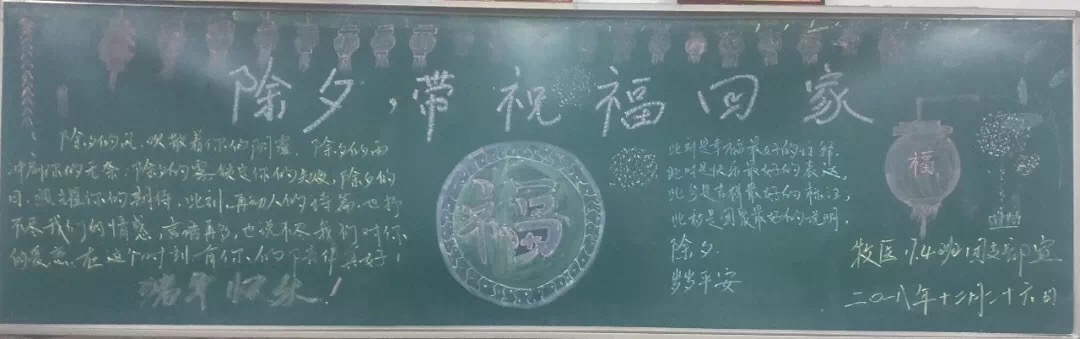 除夕,带祝福回家
除夕的风,吹散着你的阴霾,除夕的雨
冲刷你的无奈,除夕的雾锁定你的失败,除夕的
日,照耀你的期待,此刻,再动人的诗篇,也抒
不尽我们的情感,言语再多,也说不尽我们对你
的爱意,在这个时刻有你们的陪伴真好!
端午快乐!
福
此刻是幸福最好的注释,
此时是快乐最好的表达,
此景是吉祥最好的标注,
此景是团聚最好的说明,
除夕.
岁岁平安
福
牧医1742班团支部宣
二〇一八年十二月二十六日